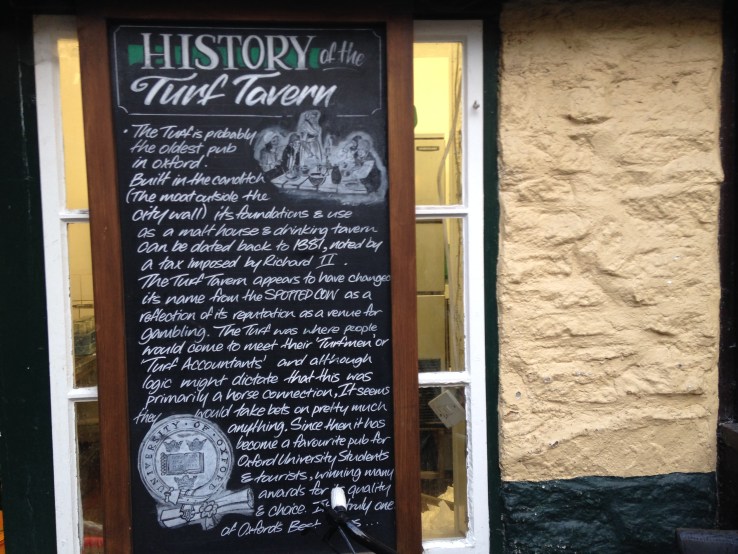 HISTORY of the
Turf Tavern
• The Turf is probably
the oldest pub
in oxford!
Built in the canditch
(The moat outside the
city wall) its foundations & use
as a malt house & drinking tavern
can be dated back to 1381, noted by
a tax imposed by Richard II.
The Turf Tavern appears to have changed
its name from the SPOTTED COW as a
reflection of its reputation as a venue for
gambling. The Turf was where people
would come to meet their 'Turfmen' or
'Turf Accountants' and although
logic might dictate that this was
primarily a horse connection, It seems
they would take bets on pretty much
anything. Since then it has
become a favourite pub for
Oxford University Students
& tourists, winning many
awards for its quality
& choice. truly one
of Oxford's Best ...
UNIVERSITY OF OXFORD